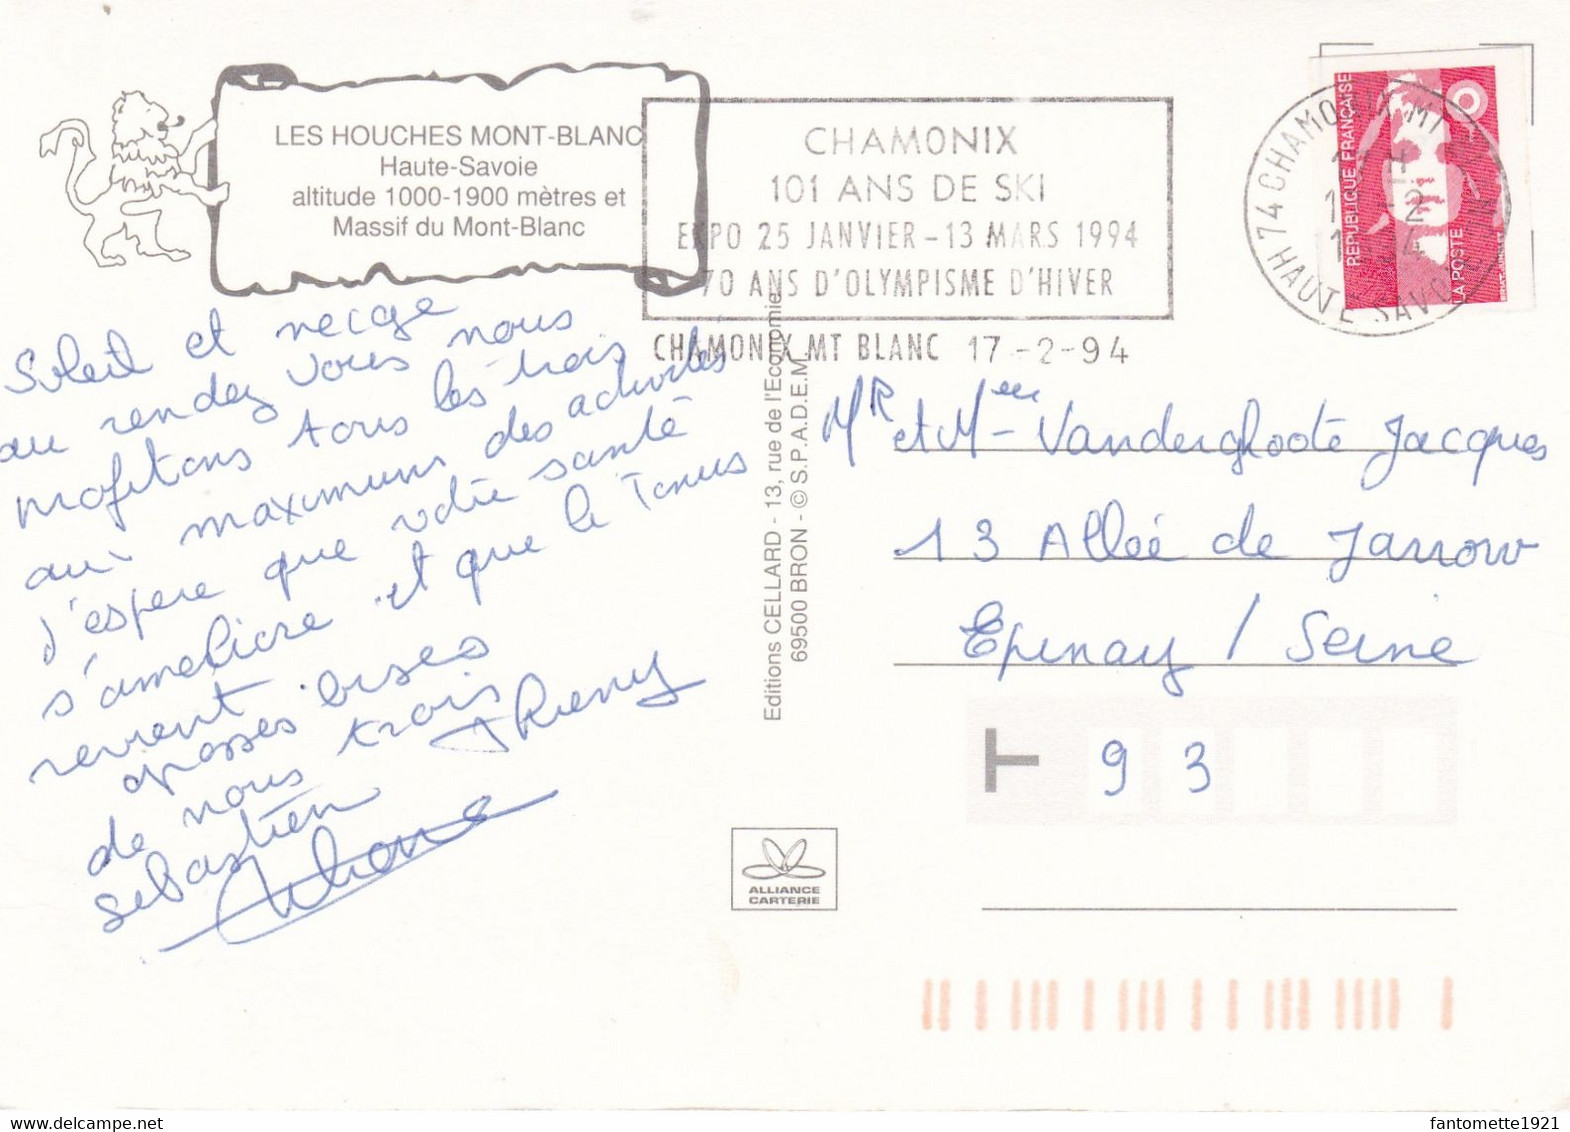 LES HOUCHES MONT-BLANC
Haute-Savoie
altitude 1000-1900 mètres et
Massif du Mont-Blanc
CHAMONIX
101 ANS DE SKI
EXPO 25 JANVIER - 13 MARS 1994
70 ANS D'OLYMPISME D'HIVER
CHAMONIX MT BLANC 17-2-94
74 CHAMONIX MT BLANC
HAUTE SAVOIE
REPUBLIQUE FRANÇAISE
LA POSTE
Soleil et neige
au rendez vous nous
profitons tous les trois
au maximum des activités
J'espère que votre santé
s'améliore et que le Tonus
revient
grosses bises
de nous trois
Sebastien
Remy
Editions CELLARD - 13, rue de l'Economie
69500 BRON - © S.P.A.D.E.M.
Mr et Mme Vanderghoote Jacques
13 Allée de Jarrow
Epinay / Seine
93
ALLIANCE
CARTERIE
fantomette1921